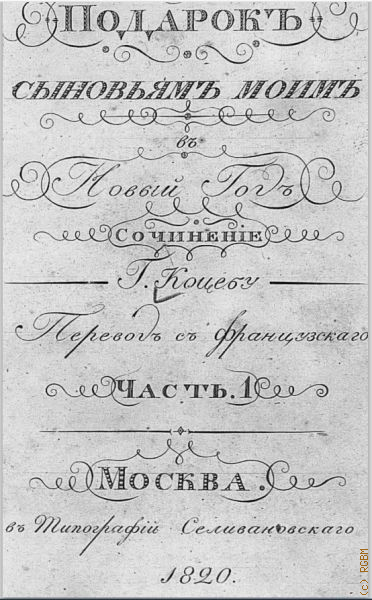 Подарокъ
сыновьямъ моимъ
въ
Новый Годъ
Сочиненіе
Г. Коцебу
Переводъ съ французскаго
Часть. 1
Москва.
въ Типографіи Селивановскаго
1820.
(c) RGBM